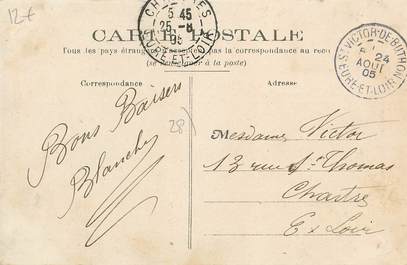 12+
CHARTRES
5 45
25 -8
05
EURE-ET-LOIR
CARTE POSTALE
ST VICTOR-DE-BUTHON
24
AOUT
05
EURE-ET-LOIR
Tous les pays étrangers n'acceptent pas la correspondance au recto
(se renseigner à la poste)
Correspondance
Adresse
28
Bons Baisers
Blanche
Mesdames Victor
13 rue St Thomas
Chartres
E x Loir